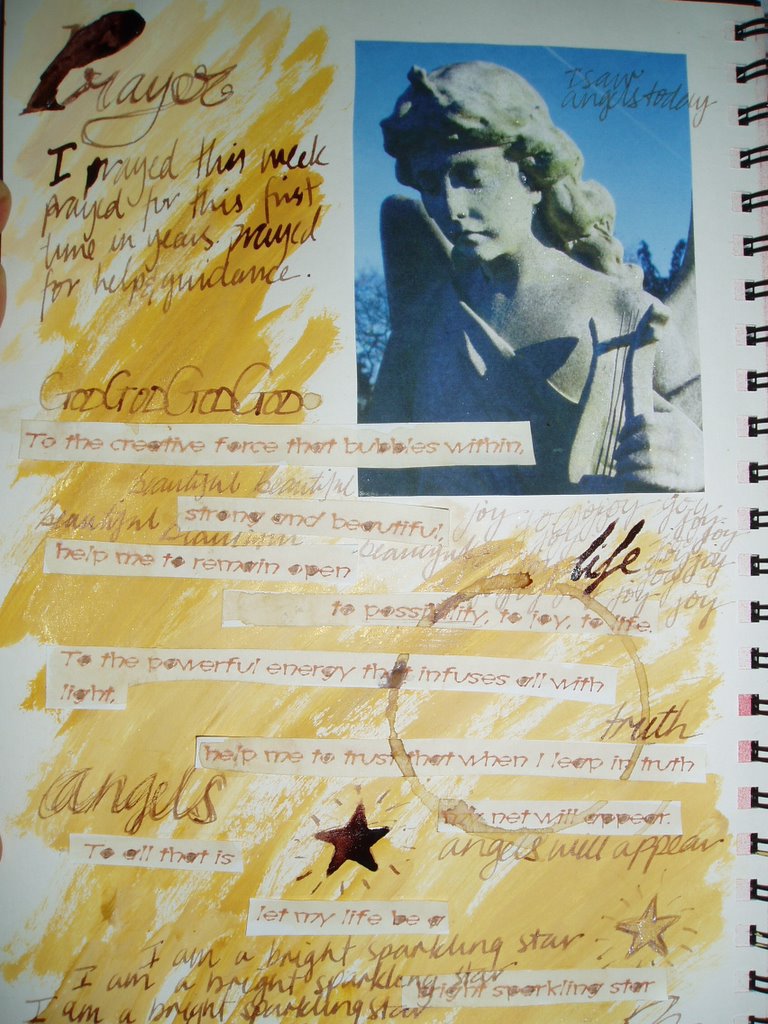 Prayer
I saw
angels today
I prayed this week
prayed for this first
time in years. prayed
for help, guidance.
GODGODGODGOD
To the creative force that bubbles within,
beautiful beautiful
strong and beautiful,
beautiful beautiful beautiful
joy joy joy joy
joy joy joy joy
help me to remain open
life
to possibility, to joy, to life.
To the powerful energy that infuses all with
light,
truth
help me to trust that when I leap in truth
angels
my net will appear.
angels will appear
To all that is
let my life be a
I am a bright sparkling star
I am a bright sparkling star
bright sparkling star
I am a bright sparkling star